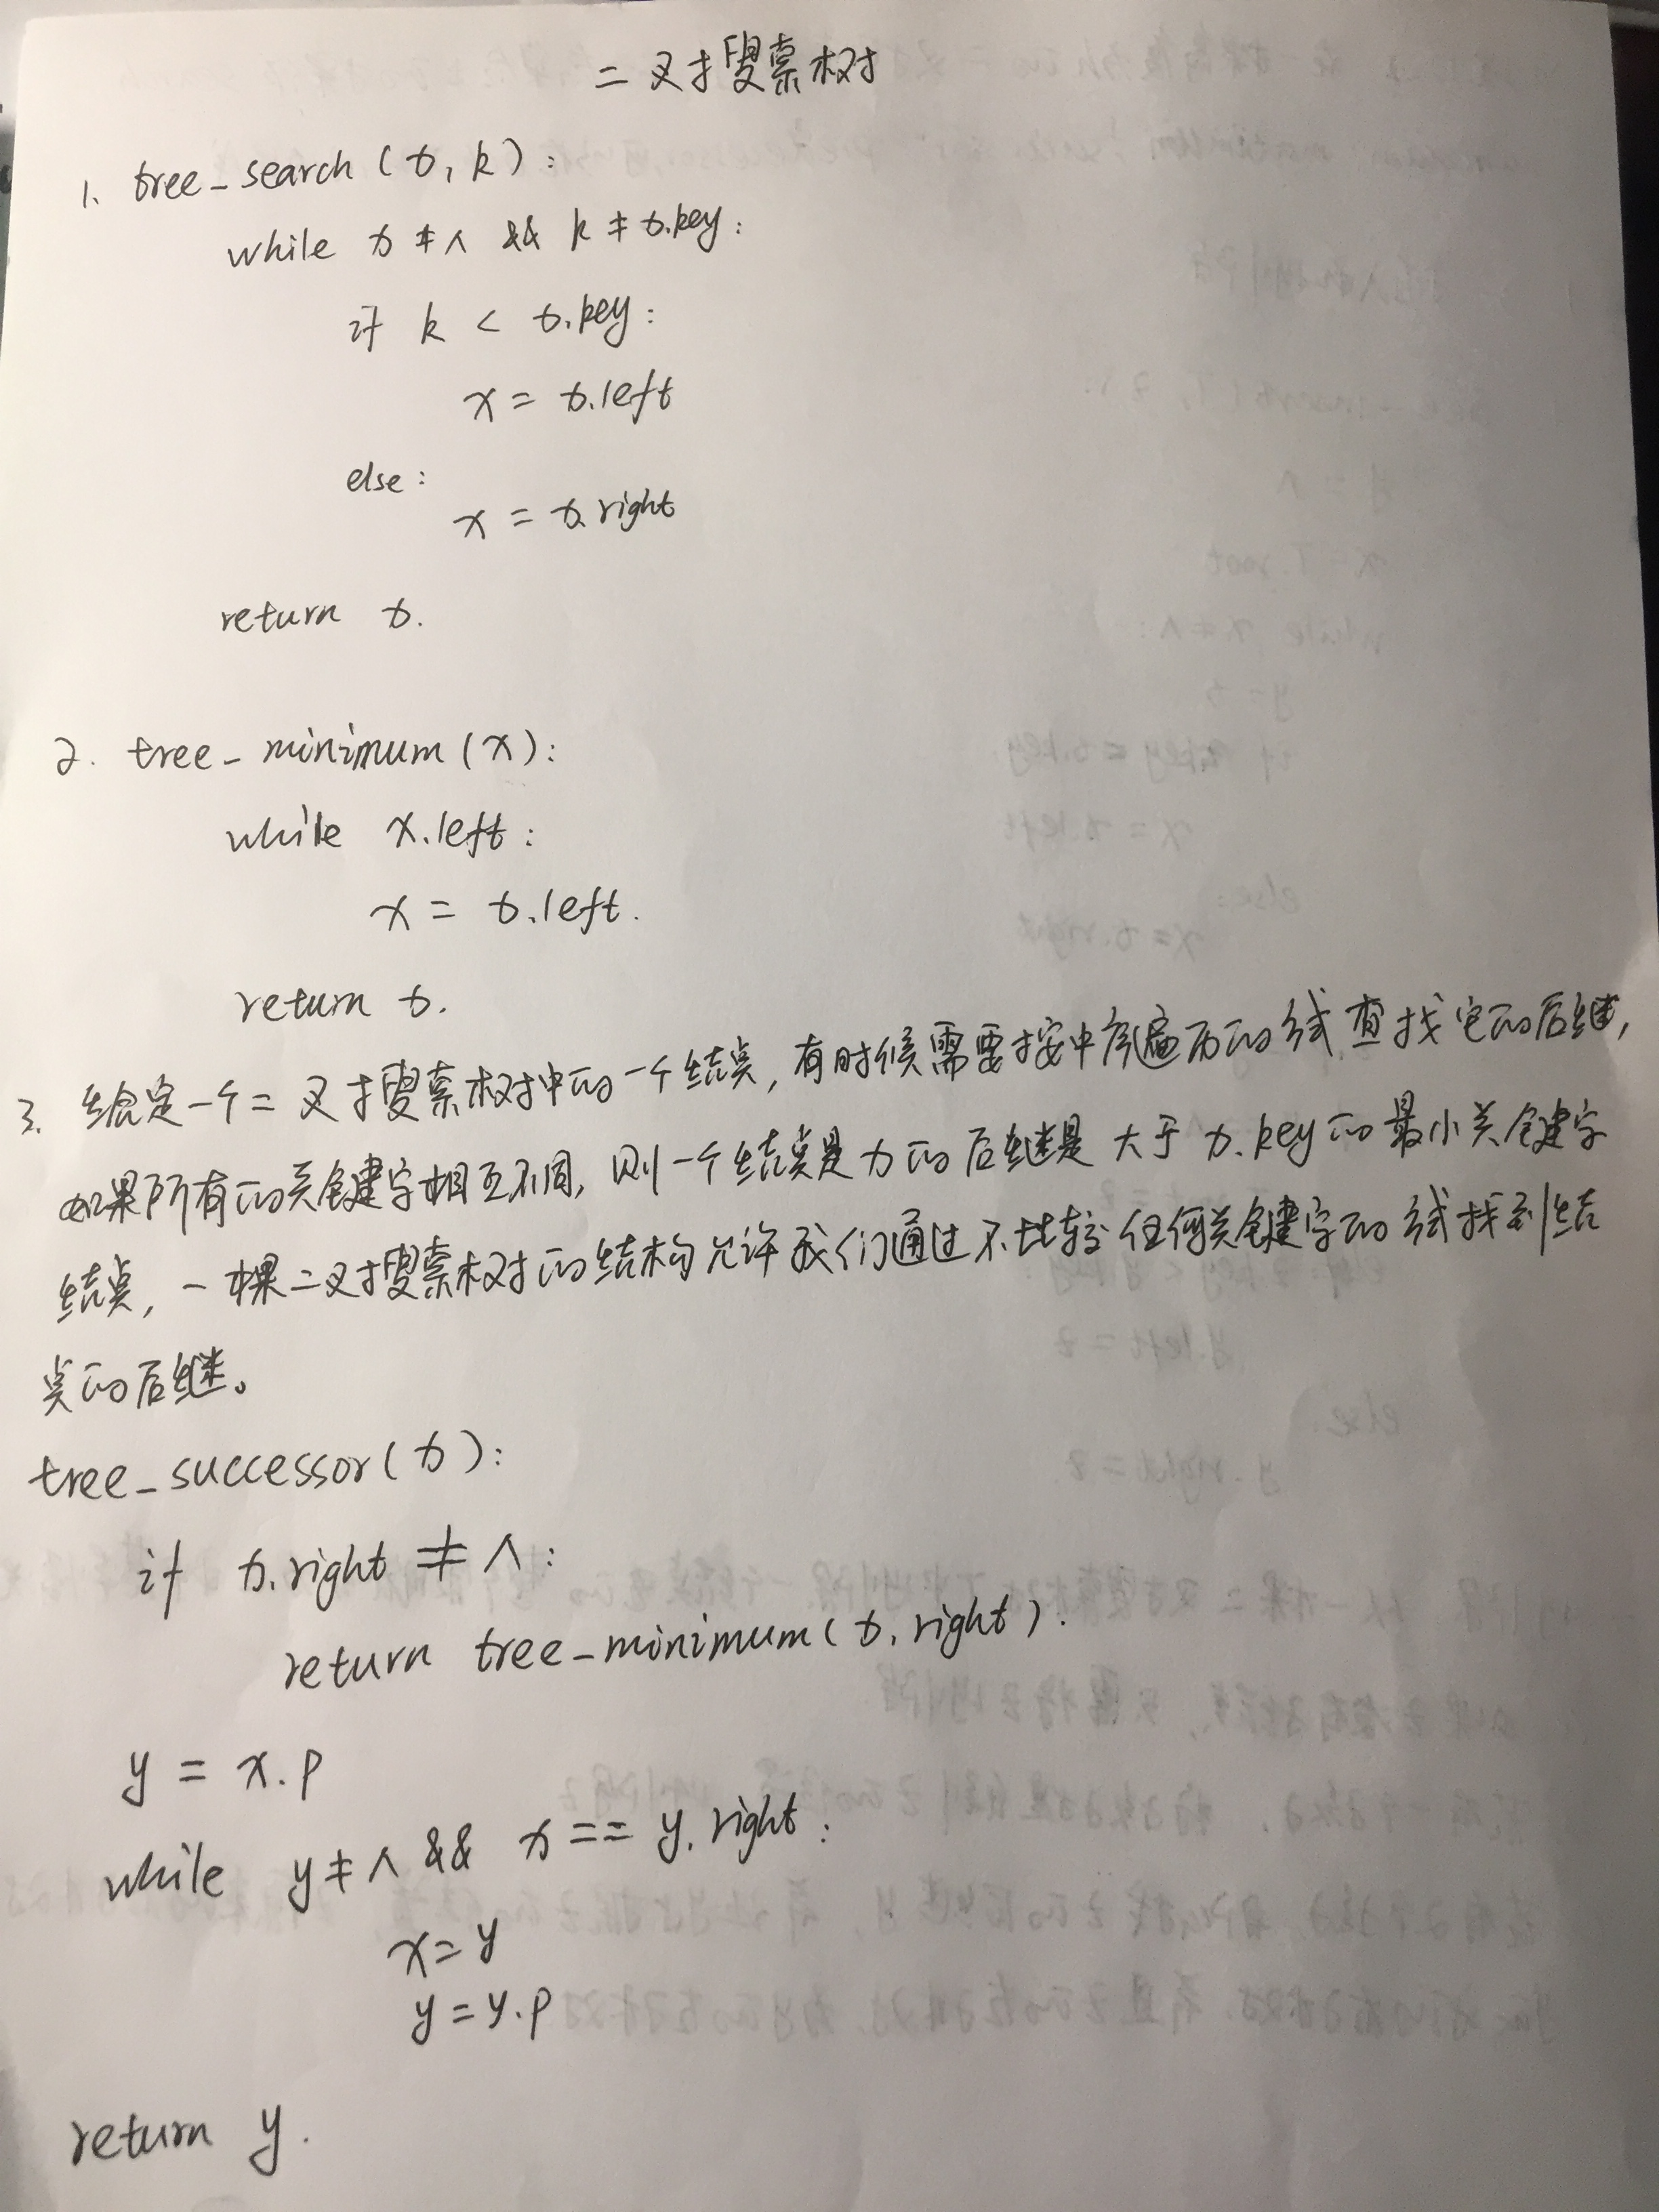 二叉搜索树
1. tree_search(x, k):
while x ≠ ∧ && k ≠ x.key:
if k < x.key:
x = x.left
else:
x = x.right
return x.
2. tree_minimum(x):
while x.left:
x = x.left.
return x.
3. 给定一个二叉搜索树中的一个结点,有时候需要按中序遍历的线查找它的后继,
如果所有的关键字相互不同,则一个结点是x的后继是大于x.key的最小关键字
结点,一棵二叉搜索树的结构允许我们通过不比较任何关键字的线找到结
点的后继。
tree_successor(x):
if x.right ≠ ∧:
return tree_minimum(x.right).
y = x.p
while y ≠ ∧ && x == y.right:
x = y
y = y.p
return y.